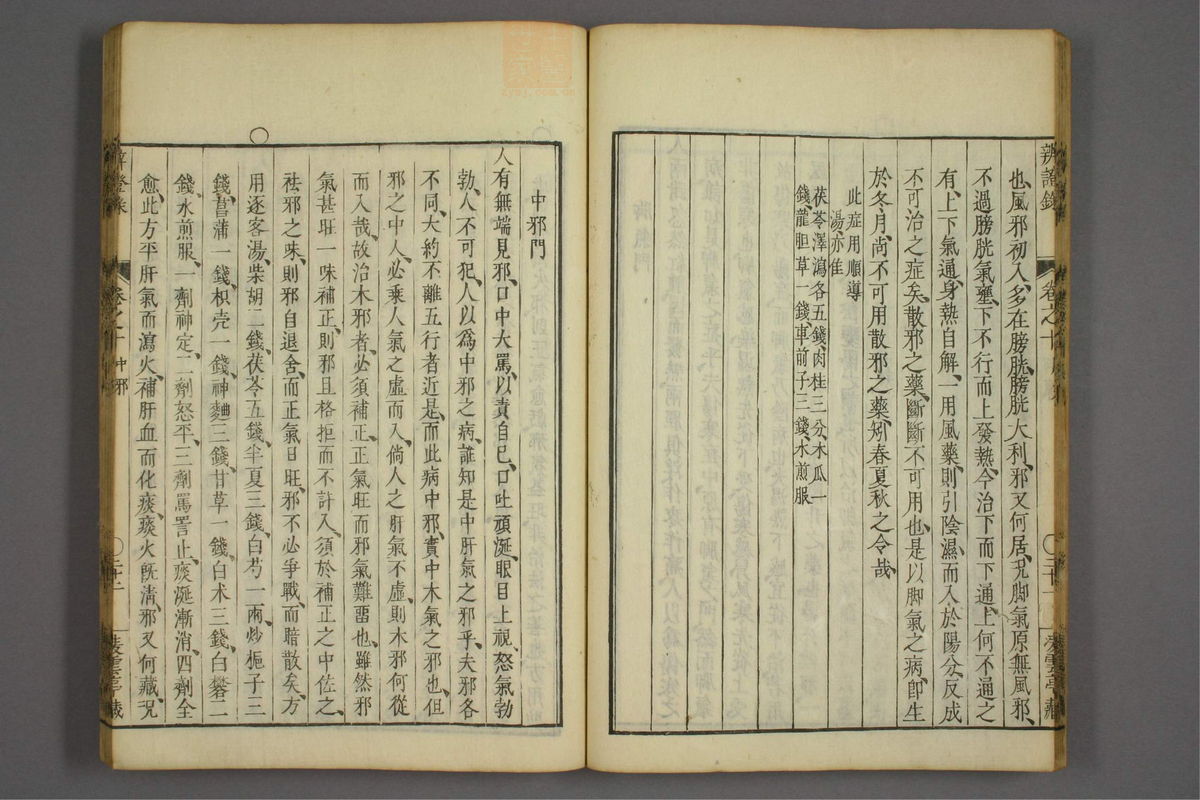 辨證錄
卷之十
二十一
藏
也、風邪初入、多在膀胱、膀胱大利、邪又何居、況脚氣原無風邪、
不過膀胱氣壅、下不行而上發熱、今治下而下通、上何不通之
有、上下氣通、身熱自解、一用風藥、則引陰濕而入於陽分、反成
不可治之症矣、散邪之藥、斷斷不可用也、是以脚氣之病、卽生
於冬月、尚不可用散邪之藥、矧春夏秋之令哉、
此症用順導
湯、亦佳
茯苓澤瀉各五錢、肉桂三分、木瓜一
錢、龍胆草一錢、車前子三錢、水煎服
中邪門
人有無端見邪、口中大罵、以責自己、口吐頑涎、眼目上視、怒氣勃
勃、人不可犯、人以爲中邪之病、誰知是中肝氣之邪乎、夫邪各
不同、大約不離五行者近是、而此病中邪、實中木氣之邪也、但
邪之中人、必乘人氣之虛而入、倘人之肝氣不虛、則木邪何從
而入哉、故治木邪者、必須補正、正氣旺而邪氣難畱也、雖然邪
氣甚旺、一味補正、則邪且格拒而不許入、須於補正之中、佐之
祛邪之味、則邪自退舍、而正氣日旺、邪不必爭戰、而暗散矣、方
○用逐客湯、柴胡二錢、茯苓五錢、半夏三錢、白芍一兩、炒梔子三
錢、菖蒲一錢、枳壳一錢、神麯三錢、甘草一錢、白术三錢、白礬二
錢、水煎服、一劑神定、二劑怒平、三劑罵詈止、痰涎漸消、四劑全
愈、此方平肝氣而瀉火、補肝血而化痰、痰火旣淸、邪又何藏、況
卷之十
中邪
二十二
藏
zysj.com.cn